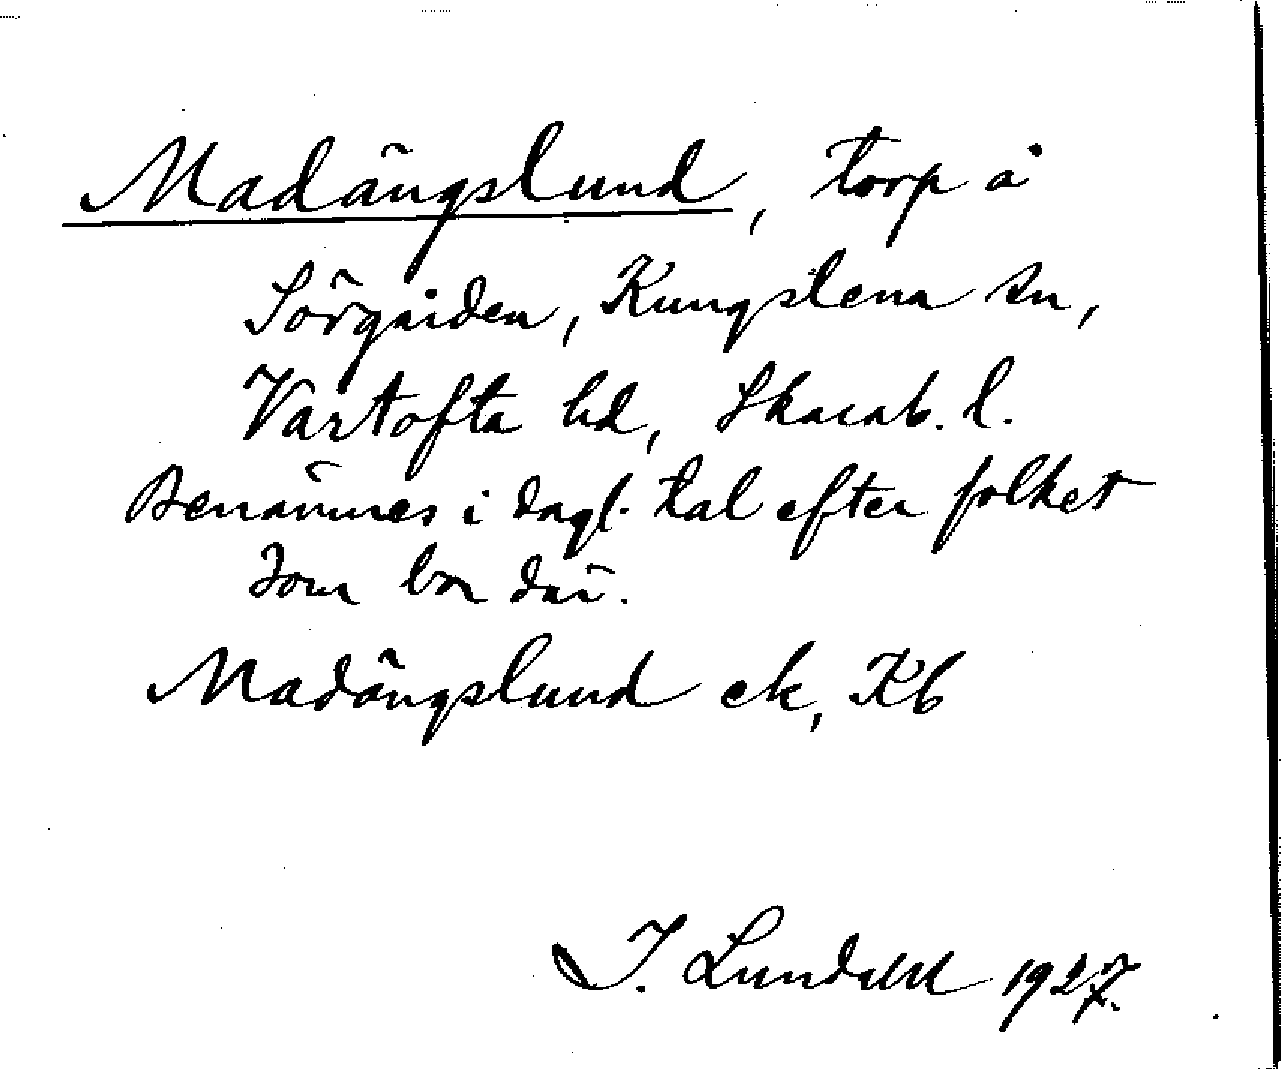 Madängslund, torp å
Sörgården, Kungslena sn,
Vartofta hd, Skarab. l.
Benämnes i dagl. tal efter folket
som bor där.
Madängslund ek, Kb
I. Lundahl 1927.